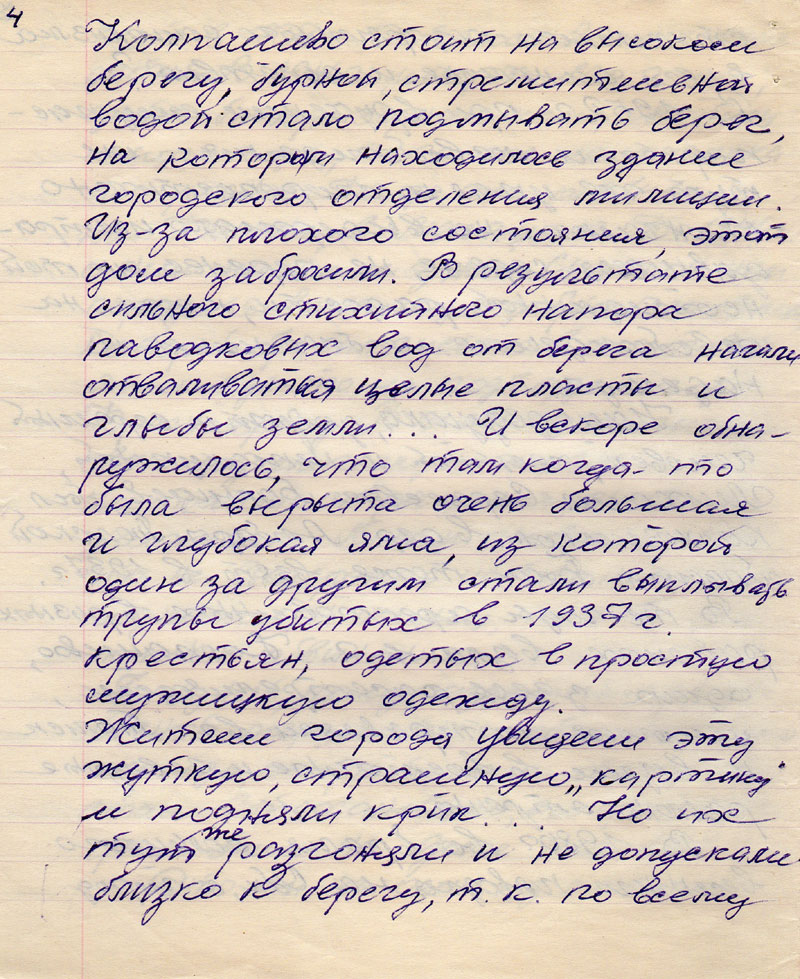 4
Колпашево стоит на высоком
берегу, бурной, стремительной
водой стало подмывать берег,
на котором находилось здание
городского отделения милиции.
Из-за плохого состояния, этот
дом забросили. В результате
сильного стихийного напора
паводковых вод от берега начали
отваливаться целые пласты и
глыбы земли... И вскоре обна-
ружилось, что там когда-то
была вырыта очень большая
и глубокая яма, из которой
один за другим стали выплывать
трупы убитых в 1937 г.
крестьян, одетых в простую
мужицкую одежду.
Жители города увидели эту
жуткую, страшную „картину"
и подняли крик... Но их
тут же разгоняли и не допускали
близко к берегу, т.к. по всему